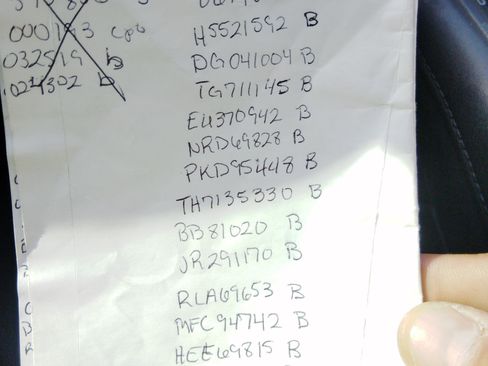 000193 cpb
032519 b
024302 b
H5521592 B
DG041004 B
TG711145 B
EU370942 B
NRD69828 B
PKD95448 B
TH7135330 B
BB81020 B
JR291170 B
RLA69653 B
MFC94742 B
HEE69815 B